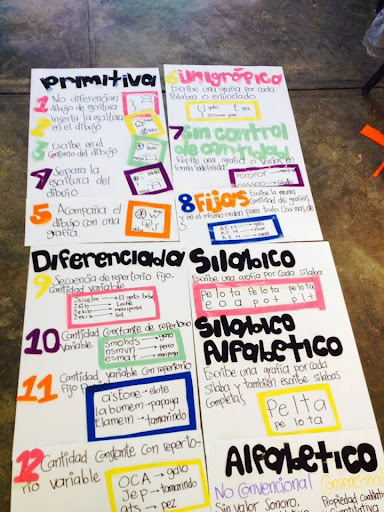 PRIMITIVA
1 No diferencian
dibujo de escritura
2 Inserta la escritura
en el dibujo
3 Escribe en el
entorno del dibujo
4 Separa la
escritura del
dibujo
5 Acompaña el
dibujo con una
grafía.
6 unigráfico
Escribe una grafía por cada
palabra o enunciado
7 Sin control
de cantidad
Repite una grafía o varias en
forma indefinida
8 Fijas
Escribe la misma
cantidad de grafías
y en el mismo orden para todo.
AEM
AEM
AEM
Diferenciada
9 Secuencia de repertorio fijo,
cantidad variable
10 Cantidad constante de repertorio
variable
smonds → gato
nsmvn → perro
esmat → mariposa
11 Cantidad variable con repertorio
astone → elote
labumem → papaya
Elamein → tamarindo
12 Cantidad constante con reperto-
rio variable
OCA → gato
Jep → tamarindo
ats → pez
Silábico
Escribe una grafía por cada sílaba
pelota pelota pelota
e o a p o t p l t
Silábico
Alfabético
Escribe una grafía por cada
sílaba y también escribe sílabas
completas
Pelta
pe lo ta
Alfabético
No Convencional
Sin valor Sonoro.
Convencional
Propiedad cualitativa